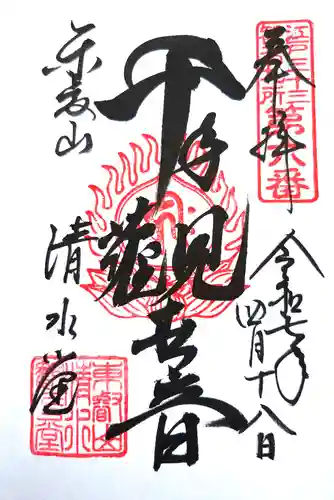 奉拝
江戸三十三観音札所第六番
令和七年
四月十八日
千手観世音
東叡山
清水堂
東叡山清水堂